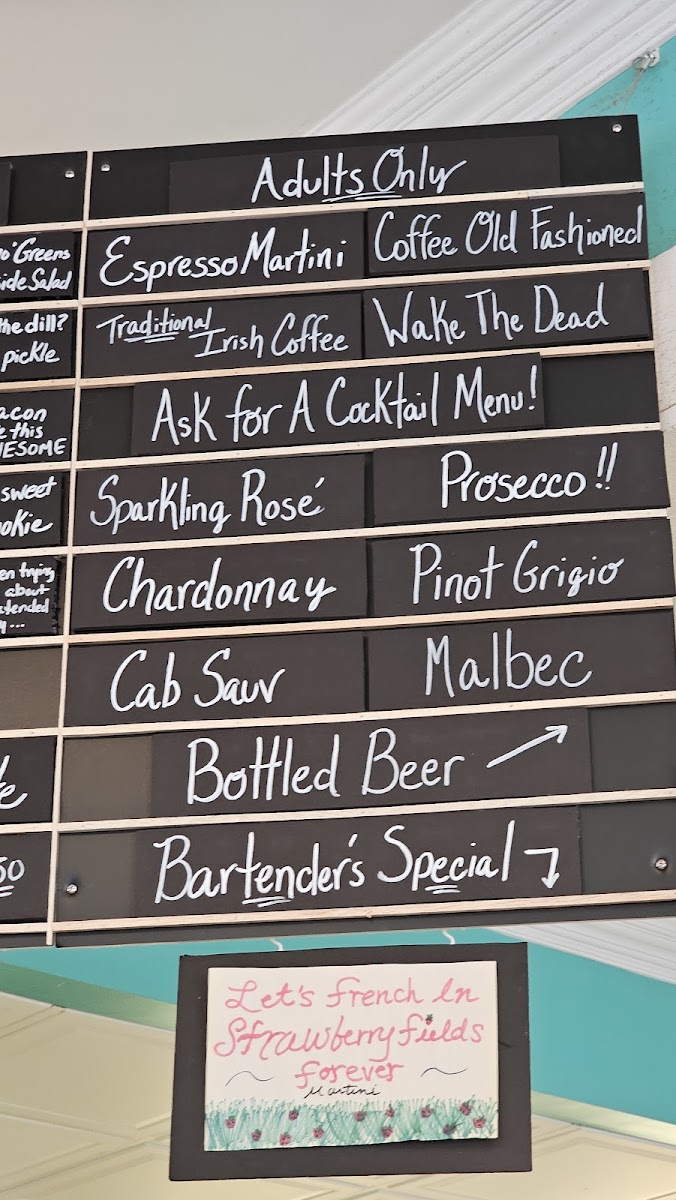 Adults Only
Espresso Martini
Coffee Old Fashioned
Traditional
Irish Coffee
Wake The Dead
Ask for A Cocktail Menu!
Sparkling Rosé
Prosecco!!
Chardonnay
Pinot Grigio
Cab Sauv
Malbec
Bottled Beer
Bartender's Special
Greens
Side Salad
the dill?
pickle
this
sweet
about
Let's french In
Strawberry fields
forever
Martini